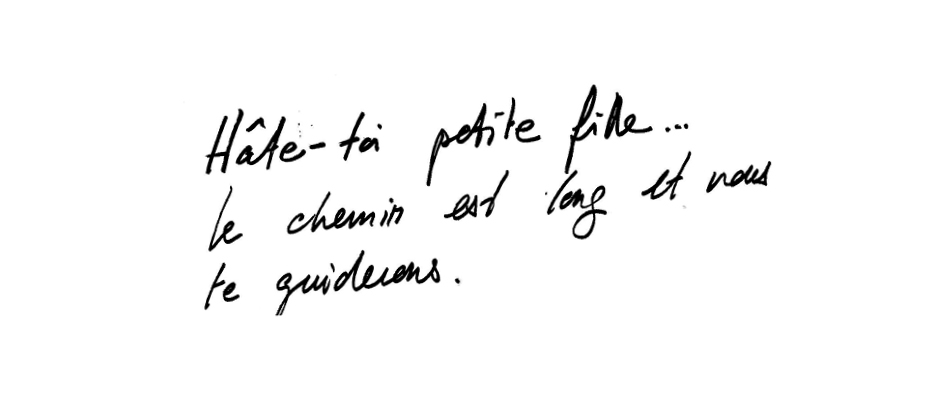 Hâte-toi petite fille...
le chemin est long et nous
te guiderons.